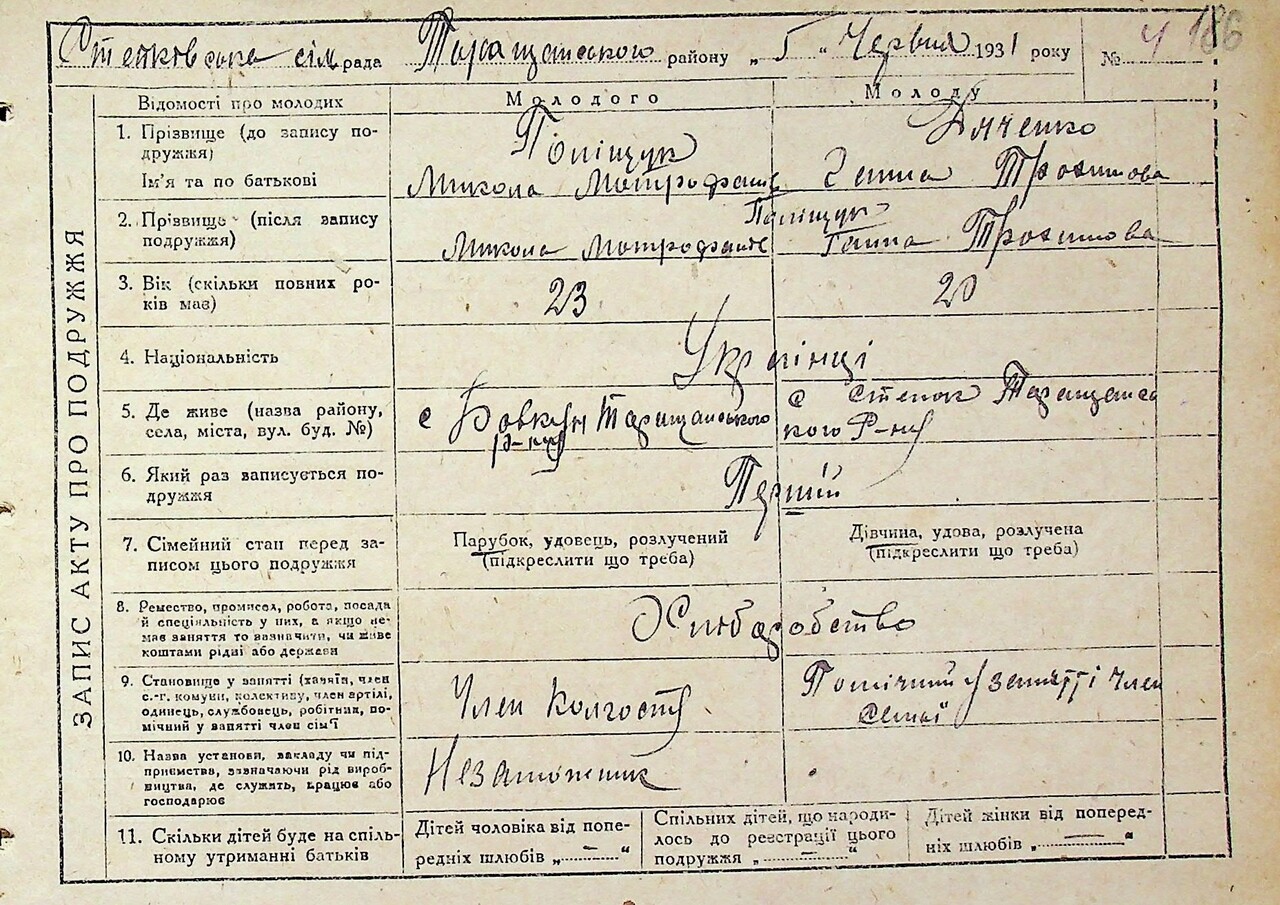 186
Степківська сіл рада Таращанського району „ 5 " Червня 1931 року № 4
ЗАПИС АКТУ ПРО ПОДРУЖЖЯ
Відомості про молодих
Молодого
Молоду
1. Прізвище (до запису по-
дружжя)
Ім'я та по батькові
Поліщук
Микола Мотрофанів
Дяченко
Ганна Трохимова
2. Прізвище (після запису
подружжя)
Поліщук
Микола Мотрофанів
Ганна Трохимова
3. Вік (скільки повних ро-
ків має)
23
20
4. Національність
Українці
5. Де живе (назва району,
села, міста, вул. буд. №)
с Бовкун Таращанського
р-ну
с Степок Таращанс
кого Р-ну
6. Який раз записується по-
дружжя
Перший
7. Сімейний стан перед за-
писом цього подружжя
Парубок, удовець, розлучений
(підкреслити що треба)
Дівчина, удова, розлучена
(підкреслити що треба)
8. Ремество, промисел, робота, посада
й спеціяльність у них, а якщо не-
має заняття то зазначити, чи живе
коштами рідні або держави
Хліборобство
9. Становище у занятті (хазяїн, член
с.-г. комуни, колективу, член артілі,
одинець, службовець, робітник, по-
мічний у занятті член сім'ї
Член Колгоспу
Помічний у занятті член
семьї
10. Назва установи, закладу чи під-
приємства, зазначаючи рід вироб-
ництва, де служить, працює або
господарює
Незаможник
11. Скільки дітей буде на спіль-
ному утриманні батьків
Дітей чоловіка від попе-
редніх шлюбів „ — "
Спільних дітей, що народи-
лось до реєстрації цього
подружжя „ — "
Дітей жінки від поперед-
ніх шлюбів „ — "